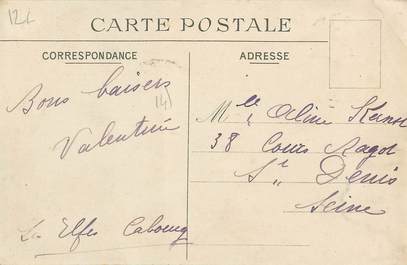 12x
CARTE POSTALE
CORRESPONDANCE
ADRESSE
Bons baisers
14
Valentine
Les Elfes Cabourg
Mlle Aline
38 Cours Ragot
St Denis
Seine